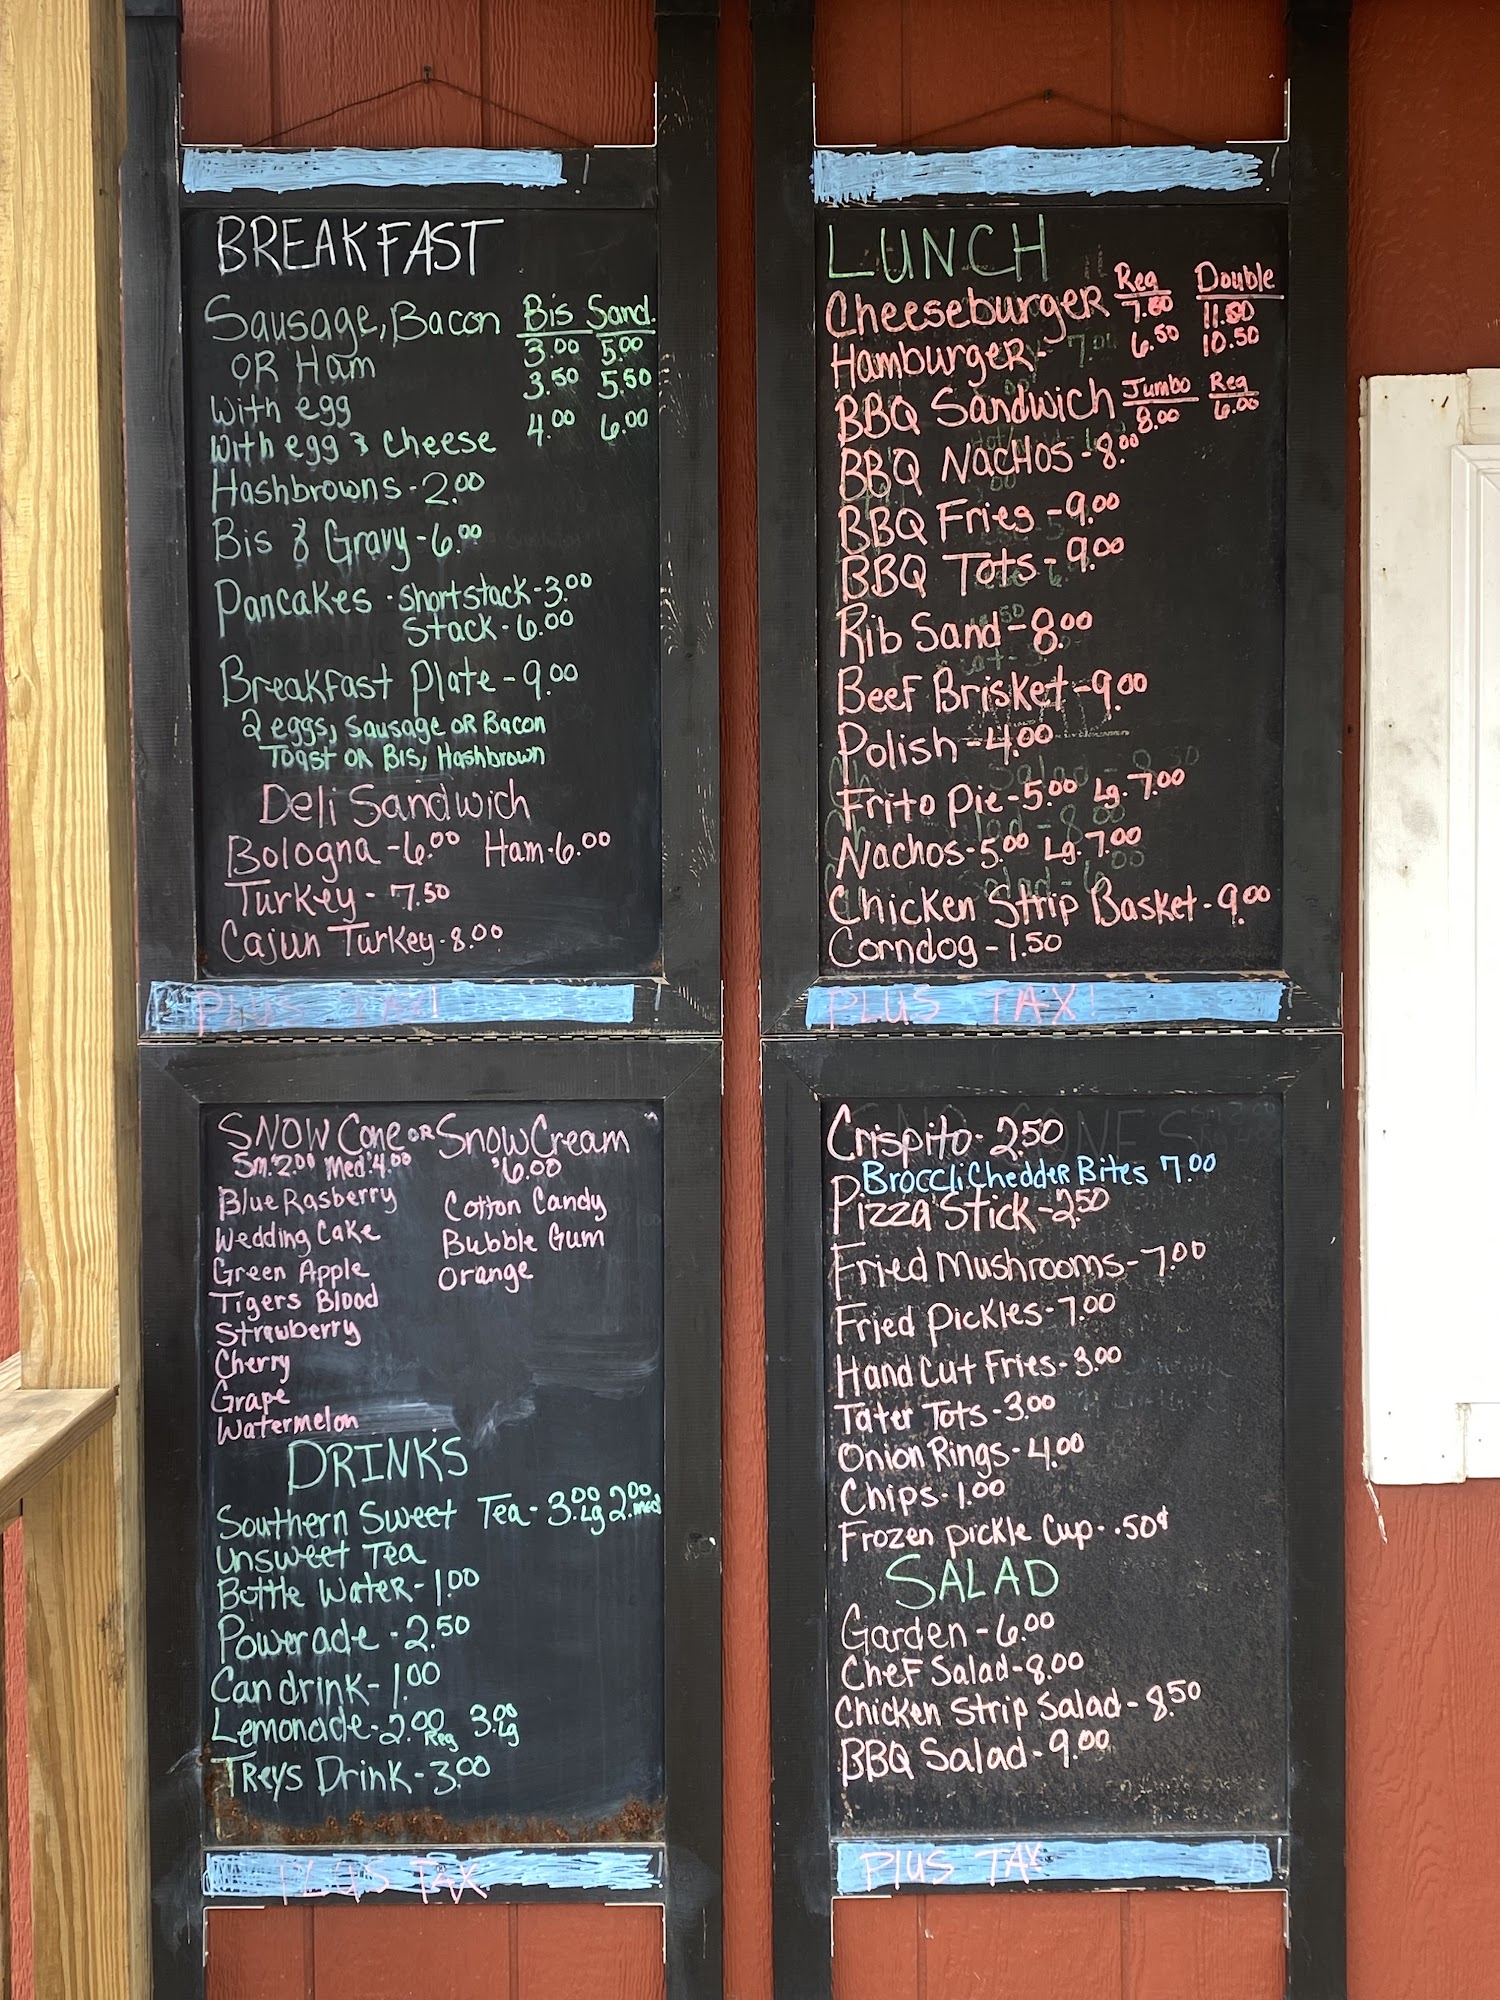 BREAKFAST
Sausage, Bacon Bis Sand.
OR Ham 3.00 5.00
With egg 3.50 5.50
With egg & Cheese 4.00 6.00
Hashbrowns - 2.00
Bis & Gravy - 6.00
Pancakes - Shortstack - 3.00
Stack - 6.00
Breakfast Plate - 9.00
2 eggs, Sausage OR Bacon
Toast OR Bis, Hashbrown
Deli Sandwich
Bologna - 6.00 Ham - 6.00
Turkey - 7.50
Cajun Turkey - 8.00
PLUS TAX!
SNOW Cone OR Snow Cream
Sm. 2.00 Med. 4.00 6.00
Blue Rasberry Cotton Candy
Wedding Cake Bubble Gum
Green Apple Orange
Tigers Blood
Strawberry
Cherry
Grape
Watermelon
DRINKS
Southern Sweet Tea - 3.00 Lg 2.00 med
Unsweet Tea
Bottle Water - 1.00
Powerade - 2.50
Can drink - 1.00
Lemonade - 2.00 Reg 3.00 Lg
Treys Drink - 3.00
PLUS TAX
LUNCH
Reg Double
Cheeseburger 7.50 11.50
Hamburger - 6.50 10.50
BBQ Sandwich Jumbo 8.00 Reg 6.00
BBQ Nachos - 8.00
BBQ Fries - 9.00
BBQ Tots - 9.00
Rib Sand - 8.00
Beef Brisket - 9.00
Polish - 4.00
Frito Pie - 5.00 Lg. 7.00
Nachos - 5.00 Lg. 7.00
Chicken Strip Basket - 9.00
Corndog - 1.50
PLUS TAX!
Crispito - 2.50
Broccli Chedder Bites 7.00
Pizza Stick - 2.50
Fried Mushrooms - 7.00
Fried Pickles - 7.00
Hand Cut Fries - 3.00
Tater Tots - 3.00
Onion Rings - 4.00
Chips - 1.00
Frozen Pickle Cup - .50¢
SALAD
Garden - 6.00
Chef Salad - 8.00
Chicken Strip Salad - 8.50
BBQ Salad - 9.00
Plus TAX